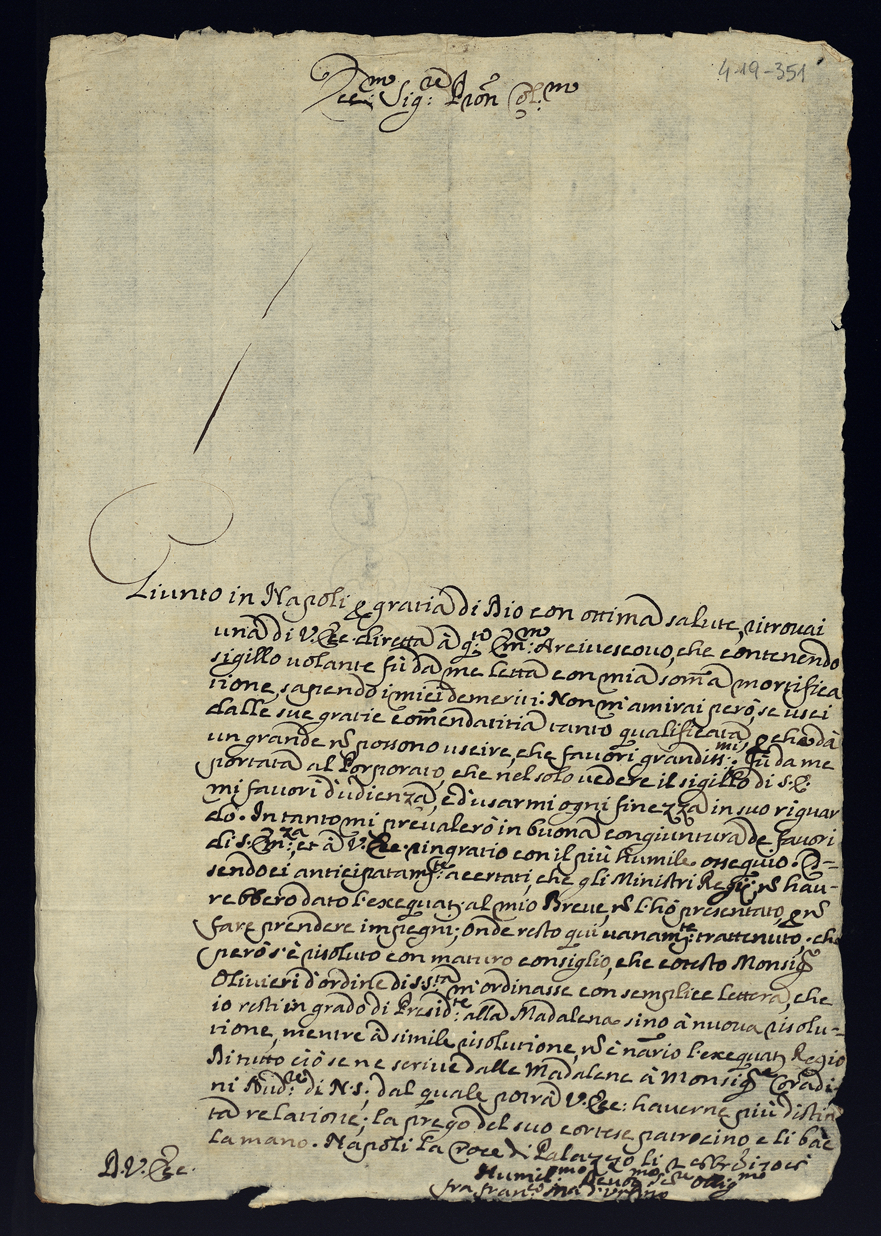 4-19-351
Ecc.mo Sig.re P'ron Col.mo
Giunto in Napoli p gratia di Dio con ottima salute, ritrovai
una di V. Ecc. diretta à q.to Em.mo Arcivescovo, che contenendo
sigillo volante fù da me letta con mia som̃a mortifica
tione, sapendo i miei demeriti. Non m'amirai però, se uscì
dalle sue gratie com̃endatitia tanto qualificata, p che da
un grande nõ possono uscire, che favori grandiss.mi. Fù da me
portata al Porporato, che nel solo vedere il sigillo di S. E.
mi favorì d'udienza, e d'usarmi ogni finezza in suo riguar
do. In tanto mi prevalerò in buona congiuntura de favori
di S. Em.za, et à V. Ecc. ringratio con il più humile ossequio. Es-
sendoci anticipatam.te accertati, che gli Ministri Regij nõ hau-
rebbero dato l'exequatur al mio Breve, nõ l'hò presentato, p nõ
fare prendere impegni; onde resto qui vanam.te trattenuto, che
però s'è risoluto con maturo consiglio, che cotesto Monsig.
Olivieri d'ordine di S. S.tà m'ordinasse con semplice lettera, che
io resti in grado di Presid.te alla Madalena sino à nuova risolu-
tione, mentre à simile risolutione nõ è n'ario l'exequatur Regio
Di tutto ciò se ne scrive dalle Madalene à Monsig.re Coradi
ni Aud.re di N. S., dal quale potrà V. Ecc: haverne più distin
ta relatione; la prego del suo cortese patrocino e li bac
la mano. Napoli la Croce di Palazzo li
D. V. Ecc.
Humil.mo Devot.mo Ser.e Oblig.mo
fra fran.co